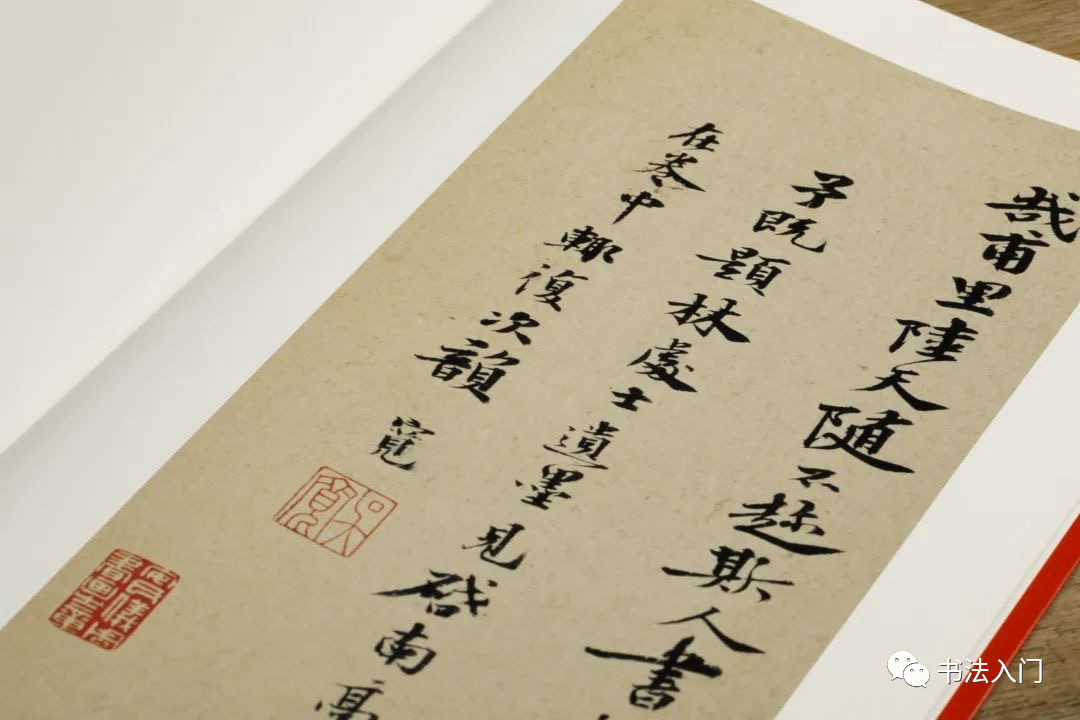 哉甫里陸天随不趂斯人書
予既題林處士遺墨見啓南
在卷中輙復次韻
寬
书法入门